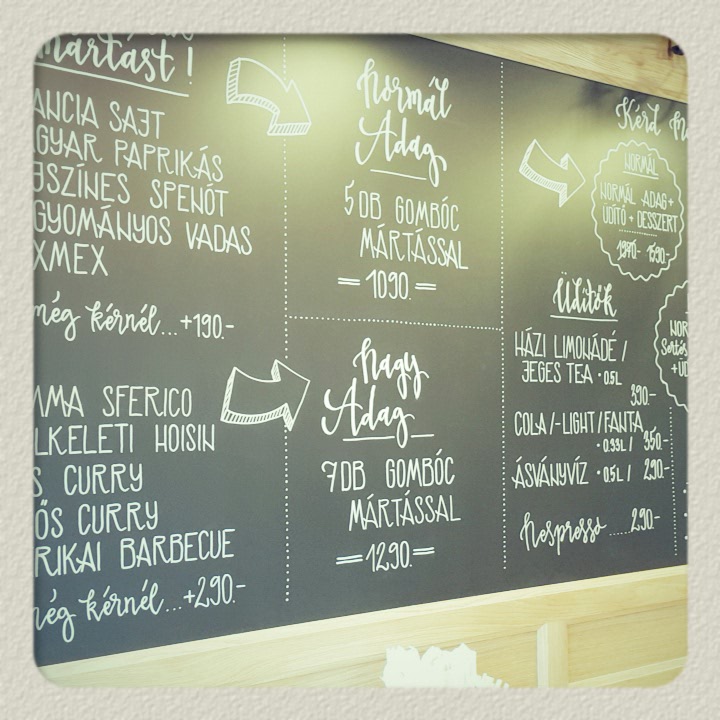 Mártást!
ANCIA SAJT
GYAR PAPRIKÁS
JSZÍNES SPENÓT
GYOMÁNYOS VADAS
XMEX
még kérnél...+190.-
MMA SFERICO
LKELETI HOISIN
S CURRY
ŐS CURRY
RIKAI BARBECUE
még kérnél...+290.-
Normál
Adag
5 DB GOMBÓC
MÁRTÁSSAL
=1090.=
Nagy
Adag
7DB GOMBÓC
MÁRTÁSSAL
=1290.=
Kérd
NORMÁL
NORMÁL ADAG+
ÜDÍTŐ + DESSZERT
1590.-
Üdítők
HÁZI LIMONÁDÉ /
JEGES TEA • 0.5L
390.-
COLA/-LIGHT/FANTA
• 0.33L / 350.-
ÁSVÁNYVÍZ • 0.5L / 290.-
Nespresso.....290.-
NOR
+ÜD